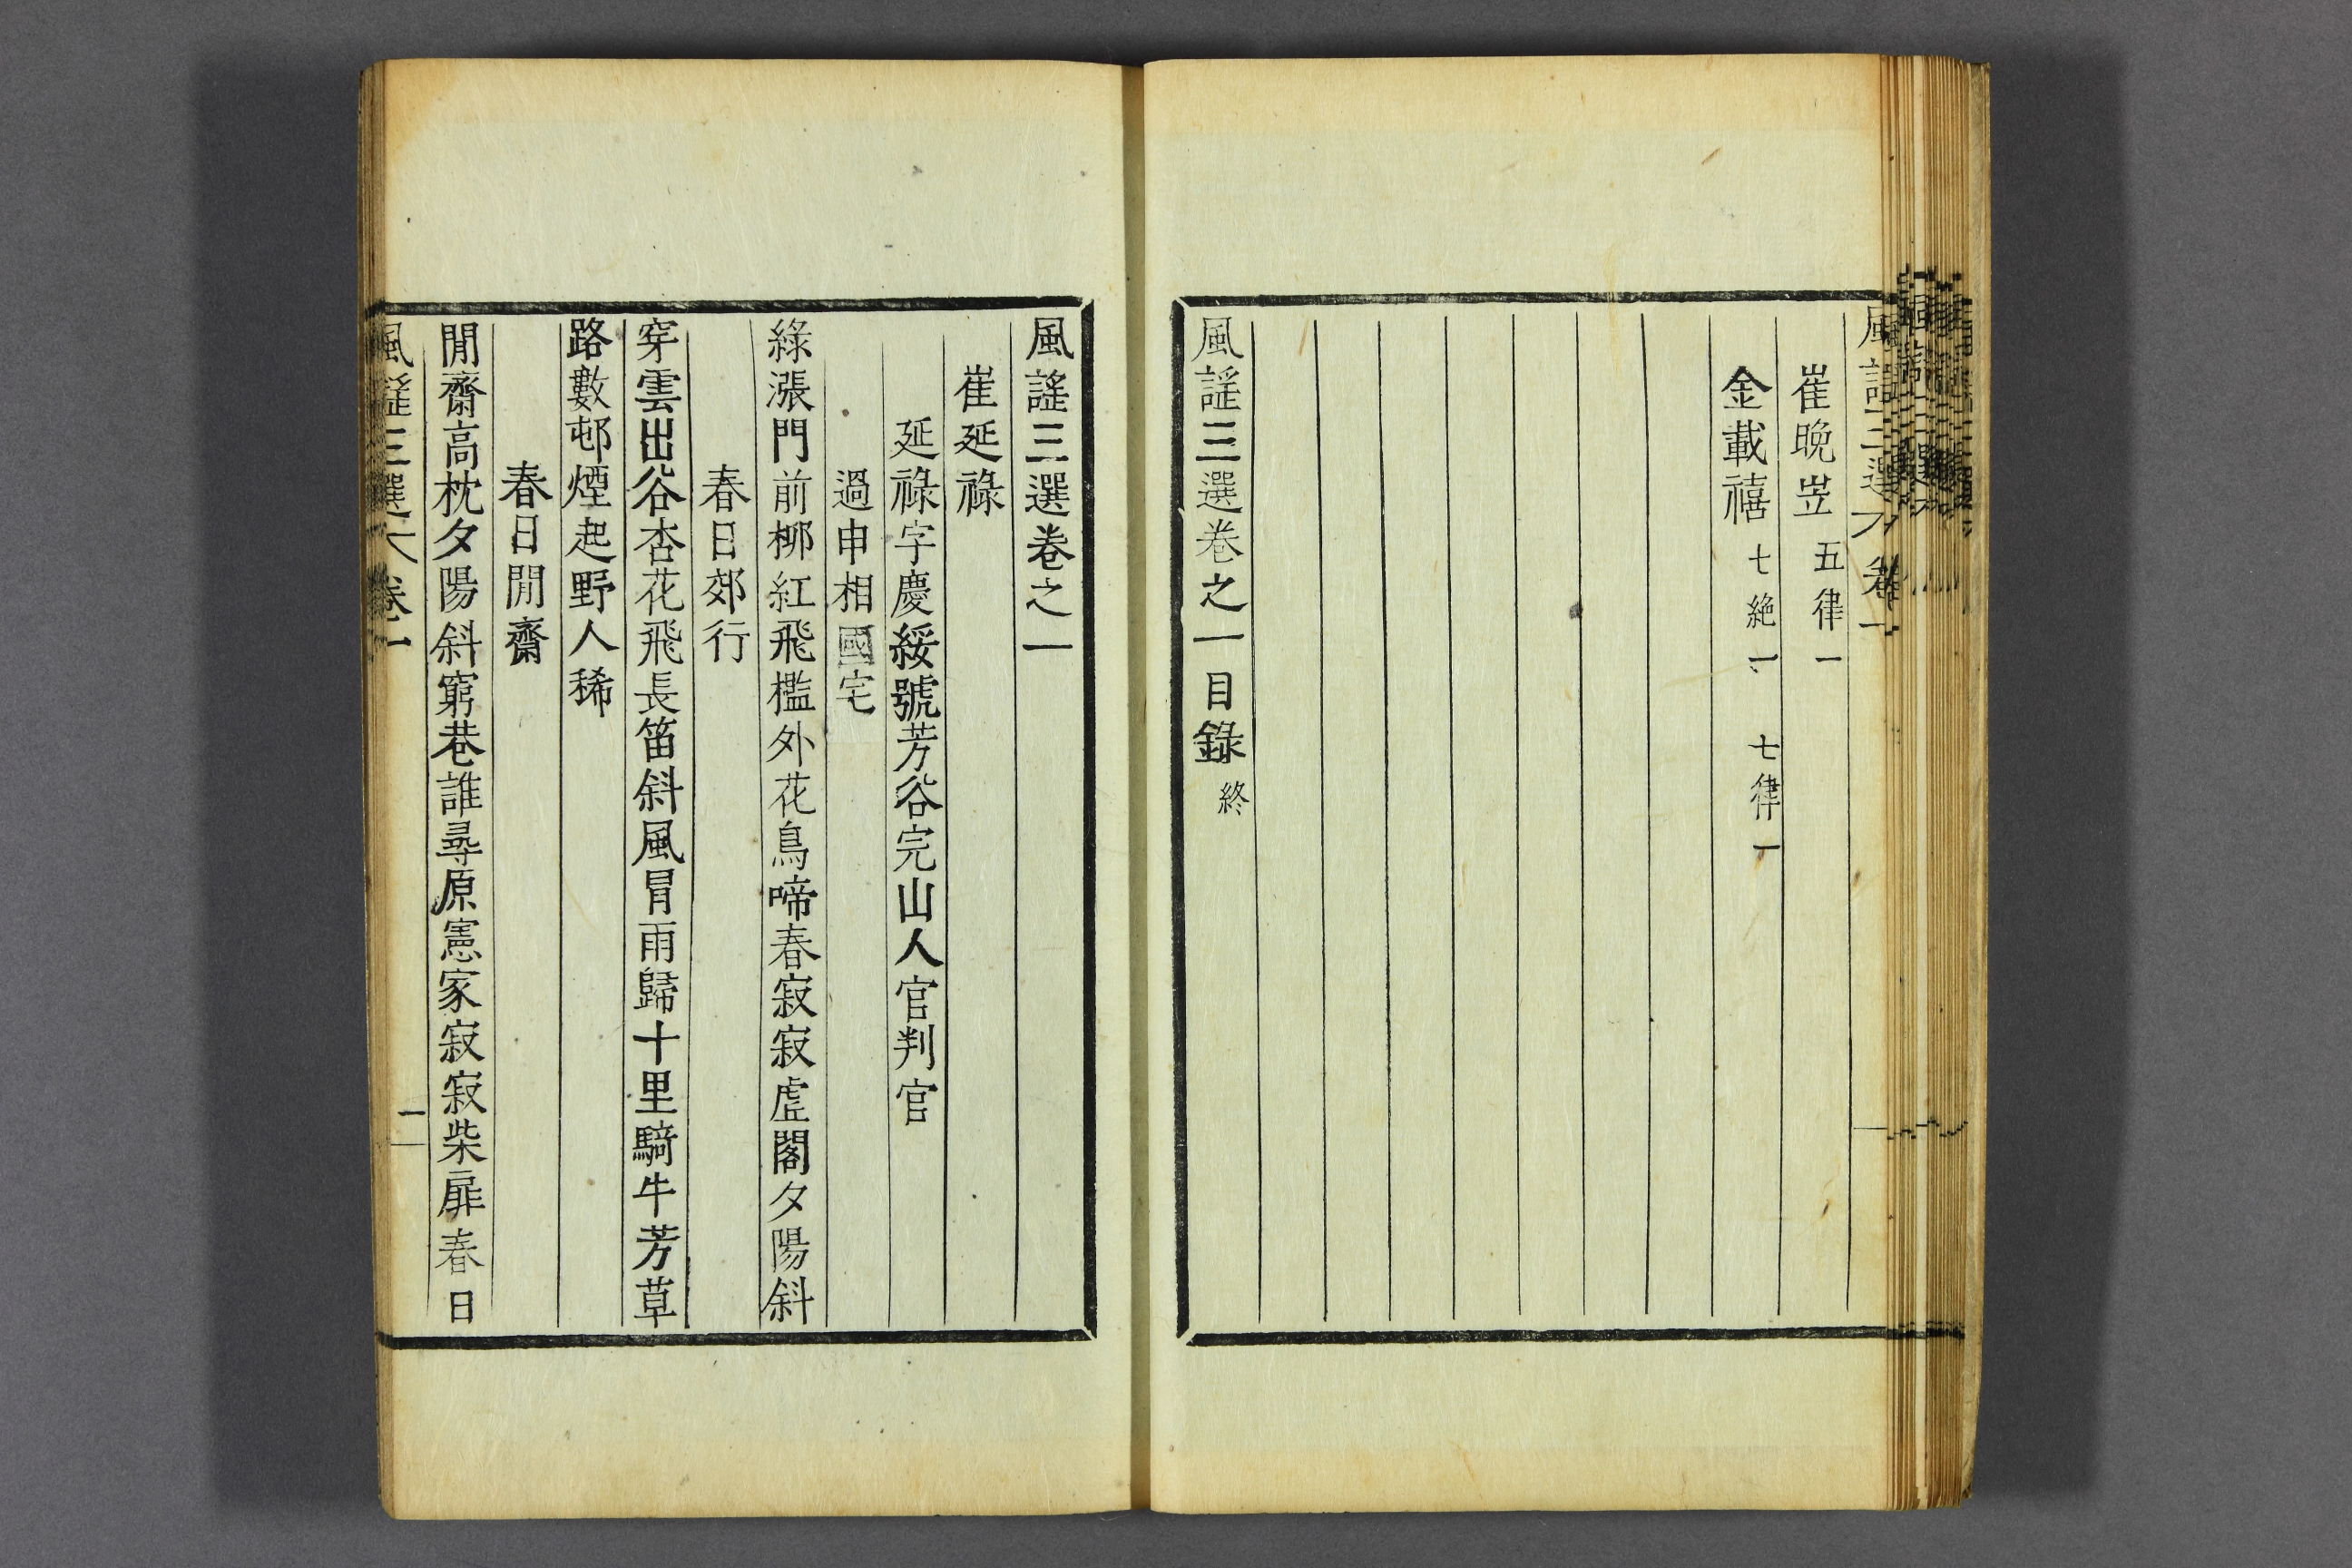 風謠三選 卷一
崔晩岦 五律一
金載禧 七絶一 七律一
風謠三選卷之一目錄 終
風謠三選卷之一
崔延祿
延祿字慶綏號芳谷完山人官判官
過申相國宅
綠漲門前柳紅飛檻外花鳥啼春寂寂虛閣夕陽斜
春日郊行
穿雲出谷杏花飛長笛斜風冒雨歸十里騎牛芳草
路數邨煙起野人稀
春日閒齋
閒齋高枕夕陽斜窮巷誰尋原憲家寂寂柴扉春日
風謠三選 卷一
一